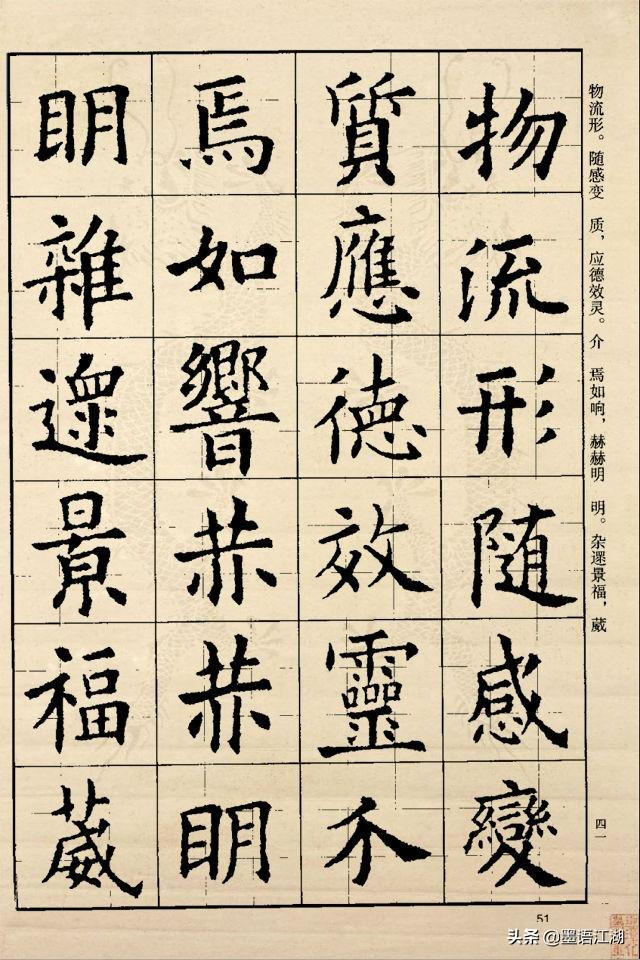 物流形。随感变 质，应德效灵。介 焉如响，赫赫明 明。杂遝景福，葳
物流形随感變
質應德效靈介
焉如響赫赫眀
眀雜遝景福葳
四一
51
头条 @墨语江湖